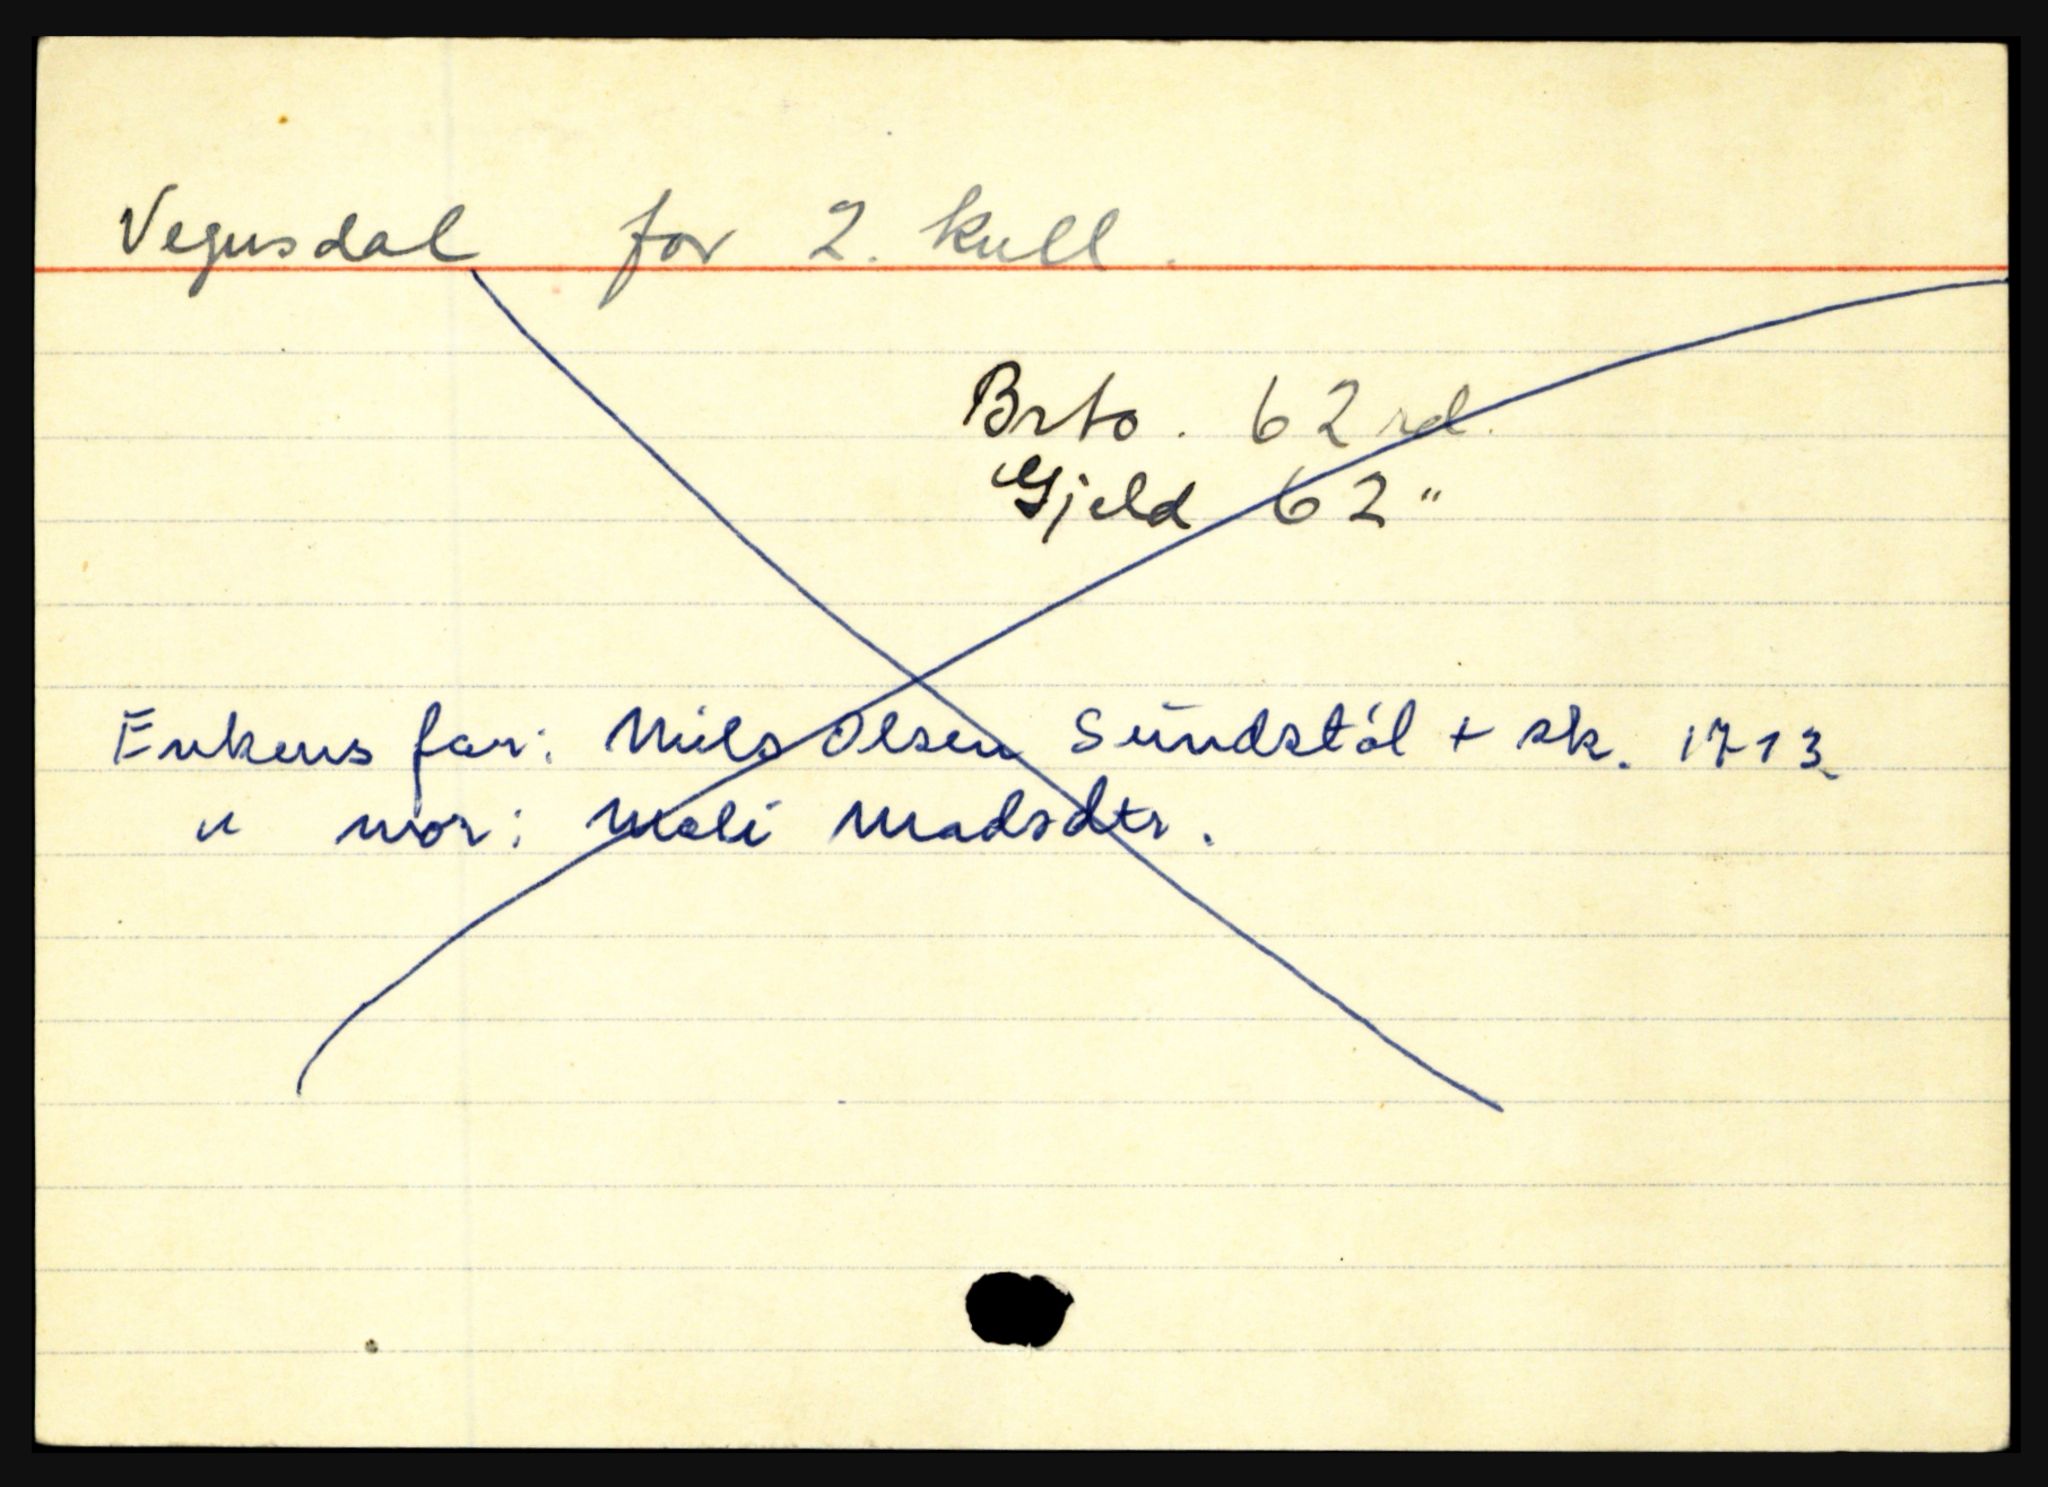 Vegusdal for 2. kull.
Brto. 62 rd.
Gjeld 62 "
Enkens far: Nils Olsen Sundstøl + sk. 1713
" mor: Mali Madsdtr.